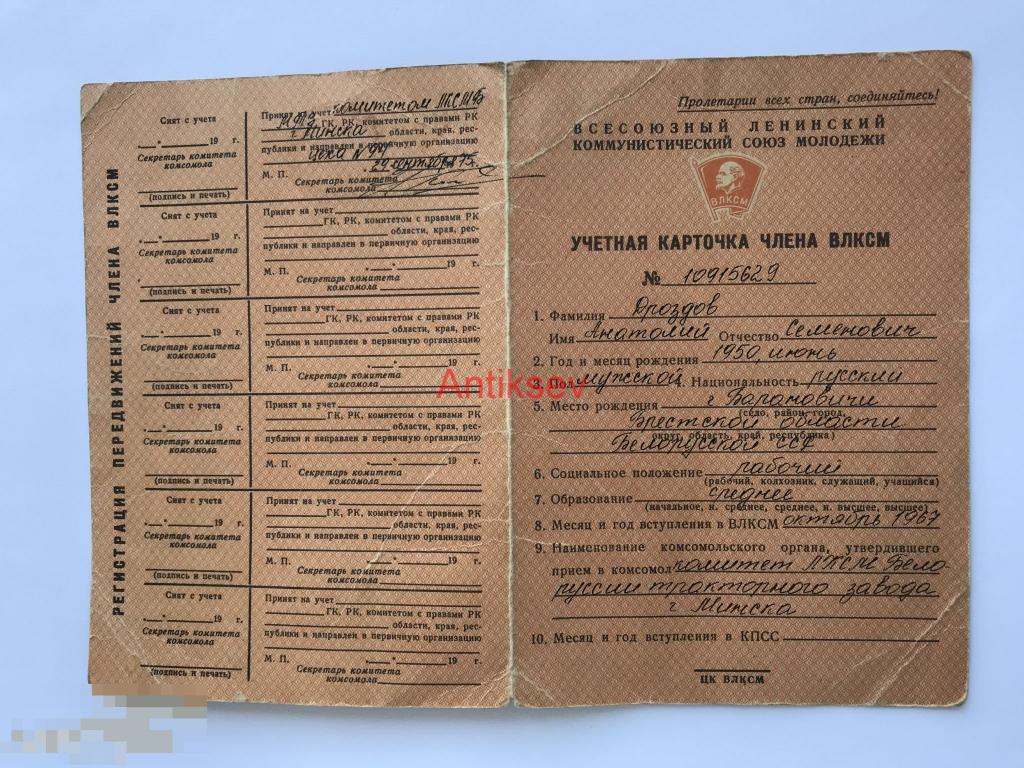 РЕГИСТРАЦИЯ ПЕРЕДВИЖЕНИЙ ЧЛЕНА ВЛКСМ
Снят с учета
19 г.
Секретарь комитета
комсомола
(подпись и печать)
Принят на учет комитетом ЛКСМБ
МТЗ ГК, РК, комитетом с правами РК
г Минска области, края, рес-
публики и направлен в первичную организацию
цеха №
М. П. 29 сентября 75г.
Секретарь комитета
комсомола
Снят с учета
19 г.
Секретарь комитета
комсомола
(подпись и печать)
Принят на учет
ГК, РК, комитетом с правами РК
области, края, рес-
публики и направлен в первичную организацию
М. П. 19 г.
Секретарь комитета
комсомола
Снят с учета
19 г.
Секретарь комитета
комсомола
(подпись и печать)
Принят на учет
ГК, РК, комитетом с правами РК
области, края, рес-
публики и направлен в первичную организацию
М. П. 19 г.
Секретарь комитета
комсомола
Снят с учета
19 г.
Секретарь комитета
комсомола
(подпись и печать)
Принят на учет
ГК, РК, комитетом с правами РК
области, края, рес-
публики и направлен в первичную организацию
М. П. 19 г.
Секретарь комитета
комсомола
Снят с учета
19 г.
Секретарь комитета
комсомола
(подпись и печать)
Принят на учет
ГК, РК, комитетом с правами РК
области, края, рес-
публики и направлен в первичную организацию
М. П. 19 г.
Секретарь комитета
комсомола
Снят с учета
19 г.
Секретарь комитета
комсомола
(подпись и печать)
Принят на учет
ГК, РК, комитетом с правами РК
области, края, рес-
публики и направлен в первичную организацию
М. П. 19 г.
Секретарь комитета
комсомола
Пролетарии всех стран, соединяйтесь!
ВСЕСОЮЗНЫЙ ЛЕНИНСКИЙ
КОММУНИСТИЧЕСКИЙ СОЮЗ МОЛОДЕЖИ
ВЛКСМ
УЧЕТНАЯ КАРТОЧКА ЧЛЕНА ВЛКСМ
№ 10915629
1. Фамилия Дроздов
Имя Анатолий Отчество Семенович
2. Год и месяц рождения 1950, июнь
3. Пол мужской 4. Национальность русский
5. Место рождения г Барановичи
(село, район, город,
Брестской области
округ, область, край, республика)
Белорусской ССР
6. Социальное положение рабочий
(рабочий, колхозник, служащий, учащийся)
7. Образование среднее
(начальное, н. среднее, среднее, н. высшее, высшее)
8. Месяц и год вступления в ВЛКСМ октябрь 1967
9. Наименование комсомольского органа, утвердившего
прием в комсомол комитет ЛКСМ Бело-
руссии тракторного завода
г Минска
10. Месяц и год вступления в КПСС
ЦК ВЛКСМ
Antiksev